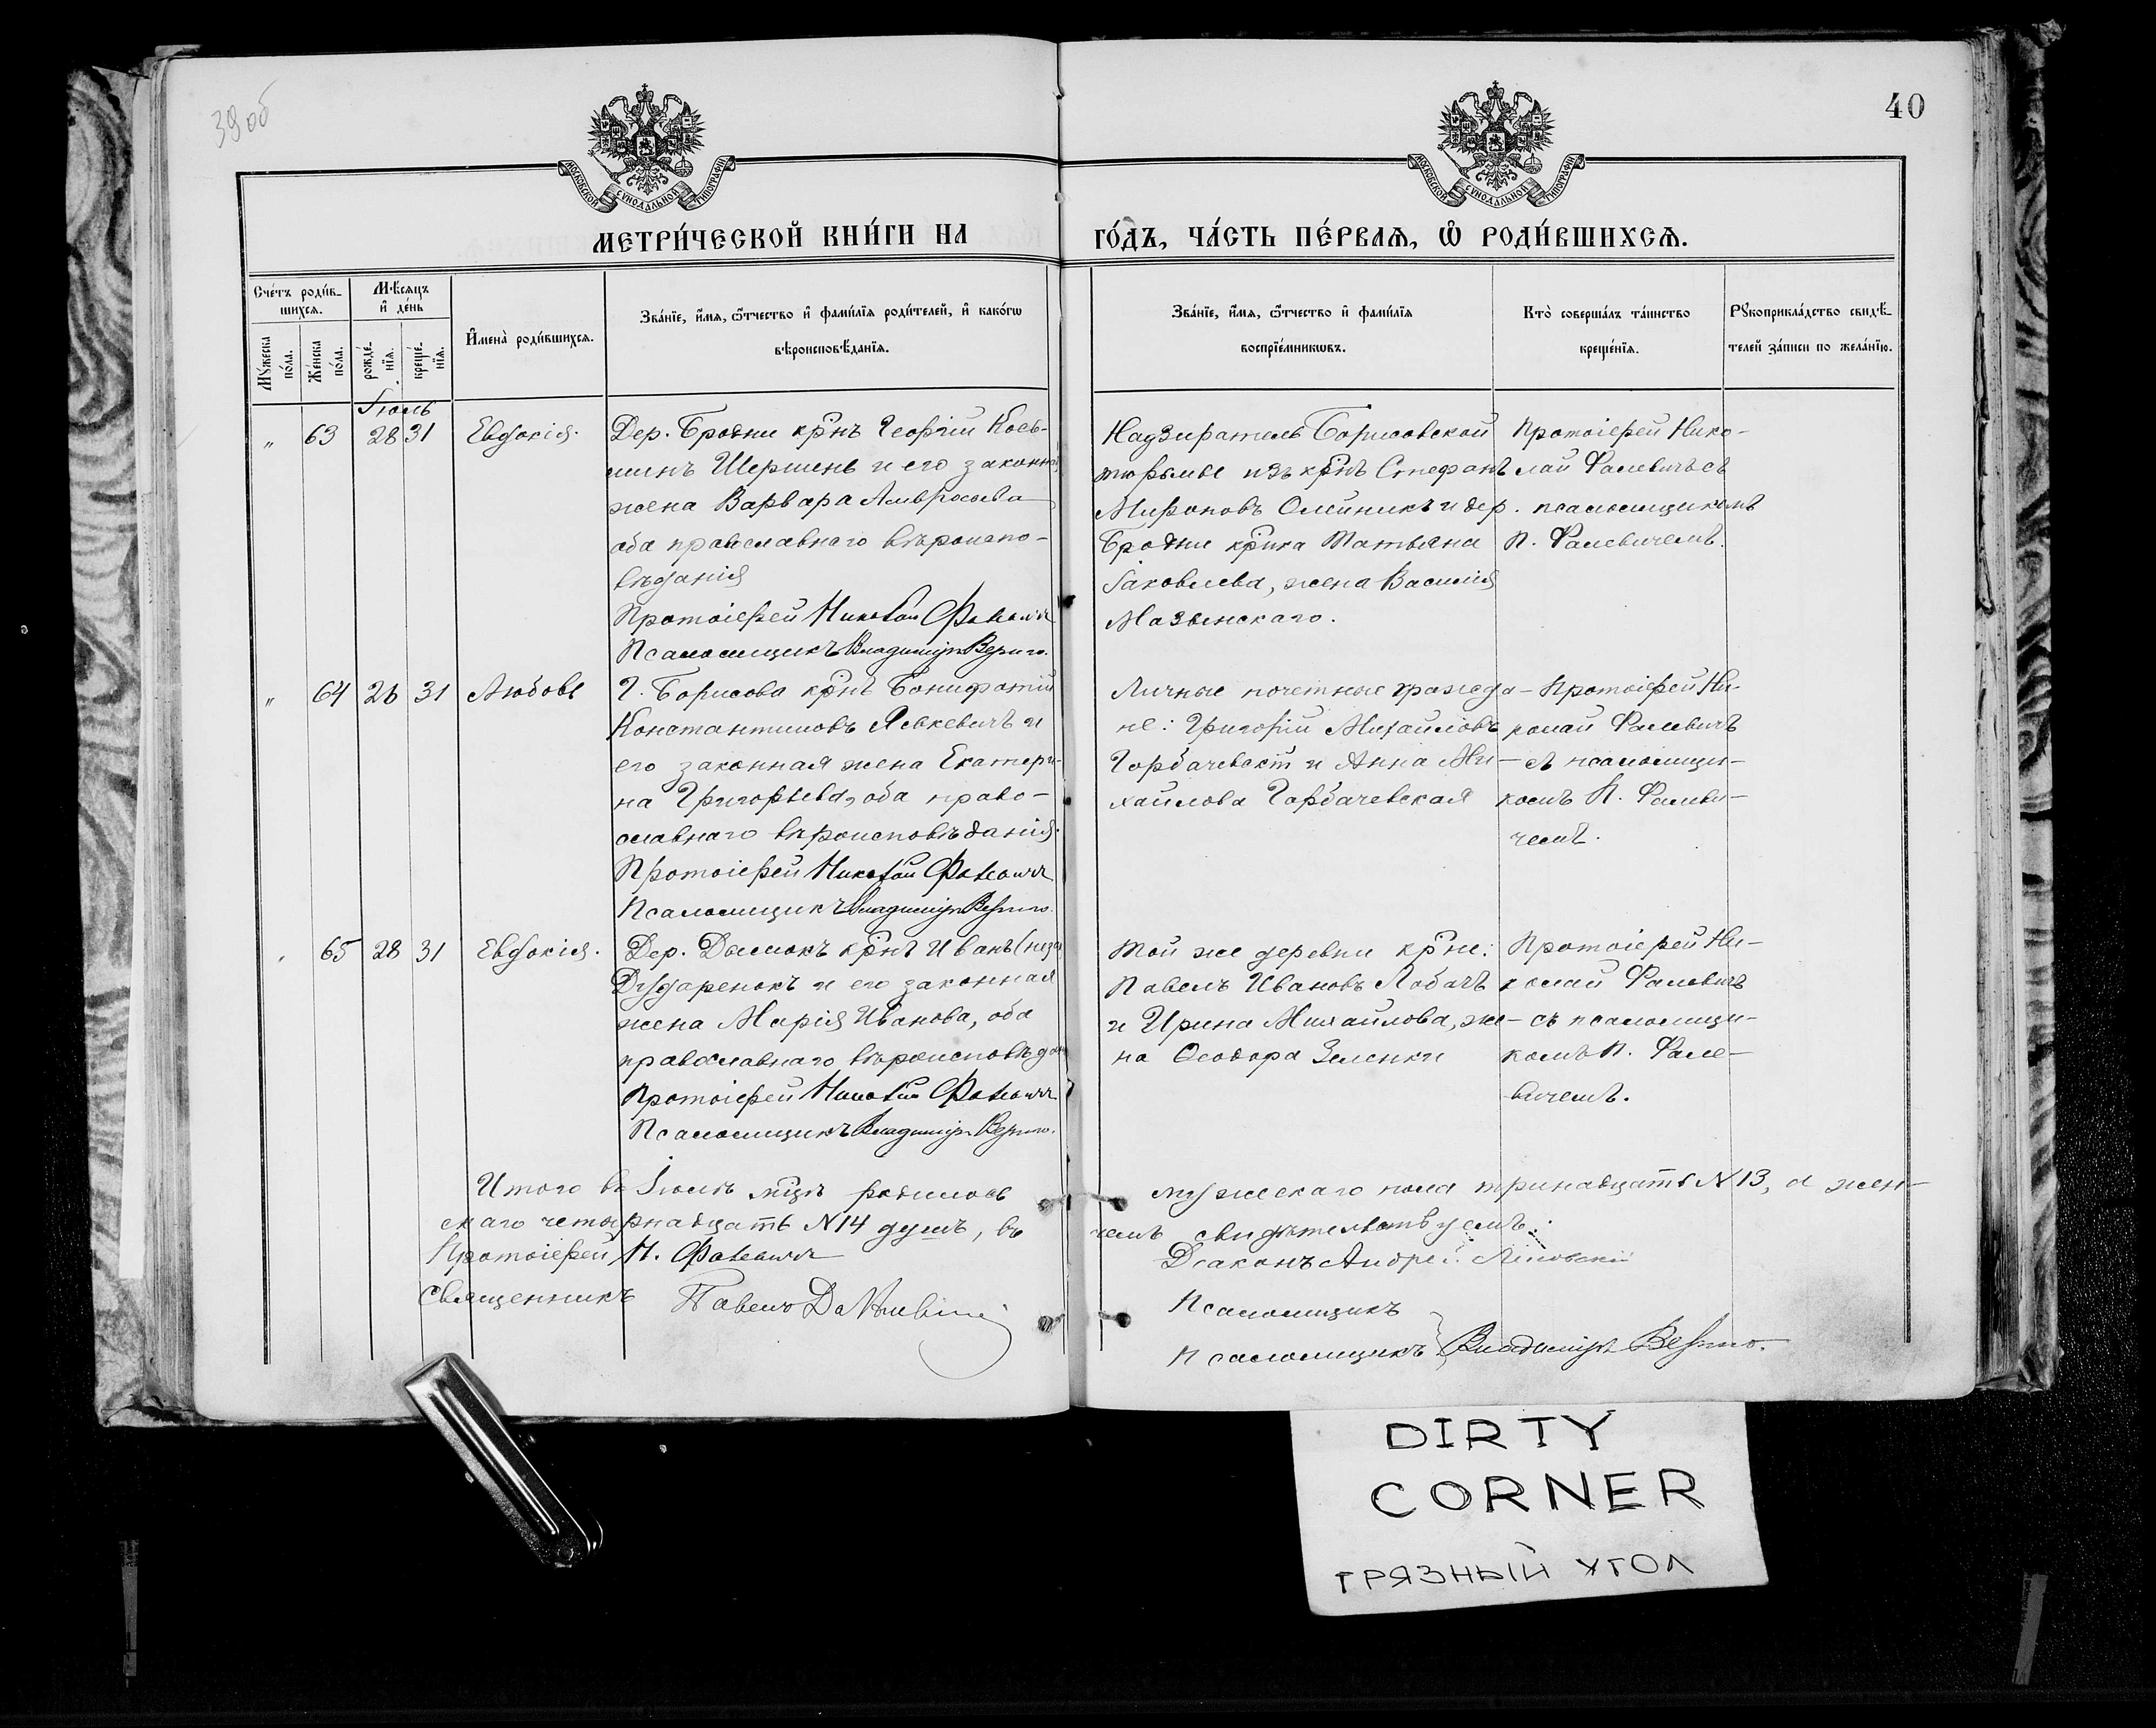 39 об
40
МОСКОВСКОЙ СѴНОДАЛЬНОЙ ТИПОГРАФІИ
МОСКОВСКОЙ СѴНОДАЛЬНОЙ ТИПОГРАФІИ
МЕТРИ́ЧЕСКОЙ КНИ́ГИ НА
ГО́ДЪ, ЧА́СТЬ ПЕ́РВАѦ, Ѡ҆ РОДИ́ВШИХСѦ.
Сче́тъ роди́в-
шихсѧ.
Мѣ́сѧцъ
и҆ де́нь
Мꙋ́жеска
по́ла.
Же́нска
по́ла.
рожде́-
нїѧ.
креще́-
нїѧ.
И҆мена̀ роди́вшихсѧ.
Зва́нїе, и҆́мѧ, ѻ҆́тчество и҆ фами́лїѧ роди́телей, и҆ како́гѡ
вѣроисповѣ́данїѧ.
Зва́нїе, и҆́мѧ, ѻ҆́тчество и҆ фами́лїѧ
воспрїе́мникѡвъ.
Кто̀ соверша́лъ та́инство
креще́нїѧ.
Рꙋкоприкла́дство свидѣ́-
телей за́писи по жела́нїю.
Іюль
„ 63 28 31 Евдокія.
Дер. Бродни кр҃нъ Георгій Кось-
минъ Шершень и его законная
жена Варвара Амвросьева
оба православнаго вѣроиспо-
вѣданія
Протоіерей Николай Фалевичъ
Псаломщикъ Владиміръ Вериго.
Надзиратель Борисовской
тюрьмы изъ кр҃нъ Стефанъ
Мироновъ Олейникъ и дер.
Бродни кр҃нка Татьяна
Іаковлева, жена Василія
Мазынскаго.
Протоіерей Нико-
лай Фалевичъ съ
псаломщикомъ
П. Фалевичемъ.
„ 64 26 31 Любовь
Г. Борисова кр҃нъ Бонифатій
Константиновъ Яськевичъ и
его законная жена Екатери-
на Григорьева, оба право-
славнаго вѣроисповѣданія.
Протоіерей Николай Фалевичъ
Псаломщикъ Владиміръ Вериго.
Личные почетные гражда-
не: Григорій Михайловъ
Горбачевскій и Анна Ми-
хайлова Горбачевская
Протоіерей Ни-
колай Фалевичъ
съ псаломщи-
комъ П. Фалеви-
чемъ.
„ 65 28 31 Евдокія.
Дер. Дымокъ кр҃нъ Иванъ
Дударенокъ и его законная
жена Марія Иванова, оба
православнаго вѣроисповѣдан
Протоіерей Николай Фалевичъ
Псаломщикъ Владиміръ Вериго.
Той же деревни кр҃не:
Павелъ Ивановъ Лобачъ
и Ирина Михайлова, же-
на Ѳеодора Зеленки
Протоіерей Ни-
колай Фалевичъ
съ псаломщи-
комъ П. Фале-
вичемъ.
Итого въ Іюлѣ м҃цѣ родилось
мужескаго пола тринадцать N 13, а жен-
скаго четырнадцать N 14 душъ, въ
чемъ свидѣтельствуемъ:
Протоіерей Н. Фалевичъ
Діаконъ Андрей
Священникъ Павелъ
Псаломщикъ
Псаломщикъ } Владиміръ Вериго.
DIRTY
CORNER
ГРЯЗНЫЙ УГОЛ